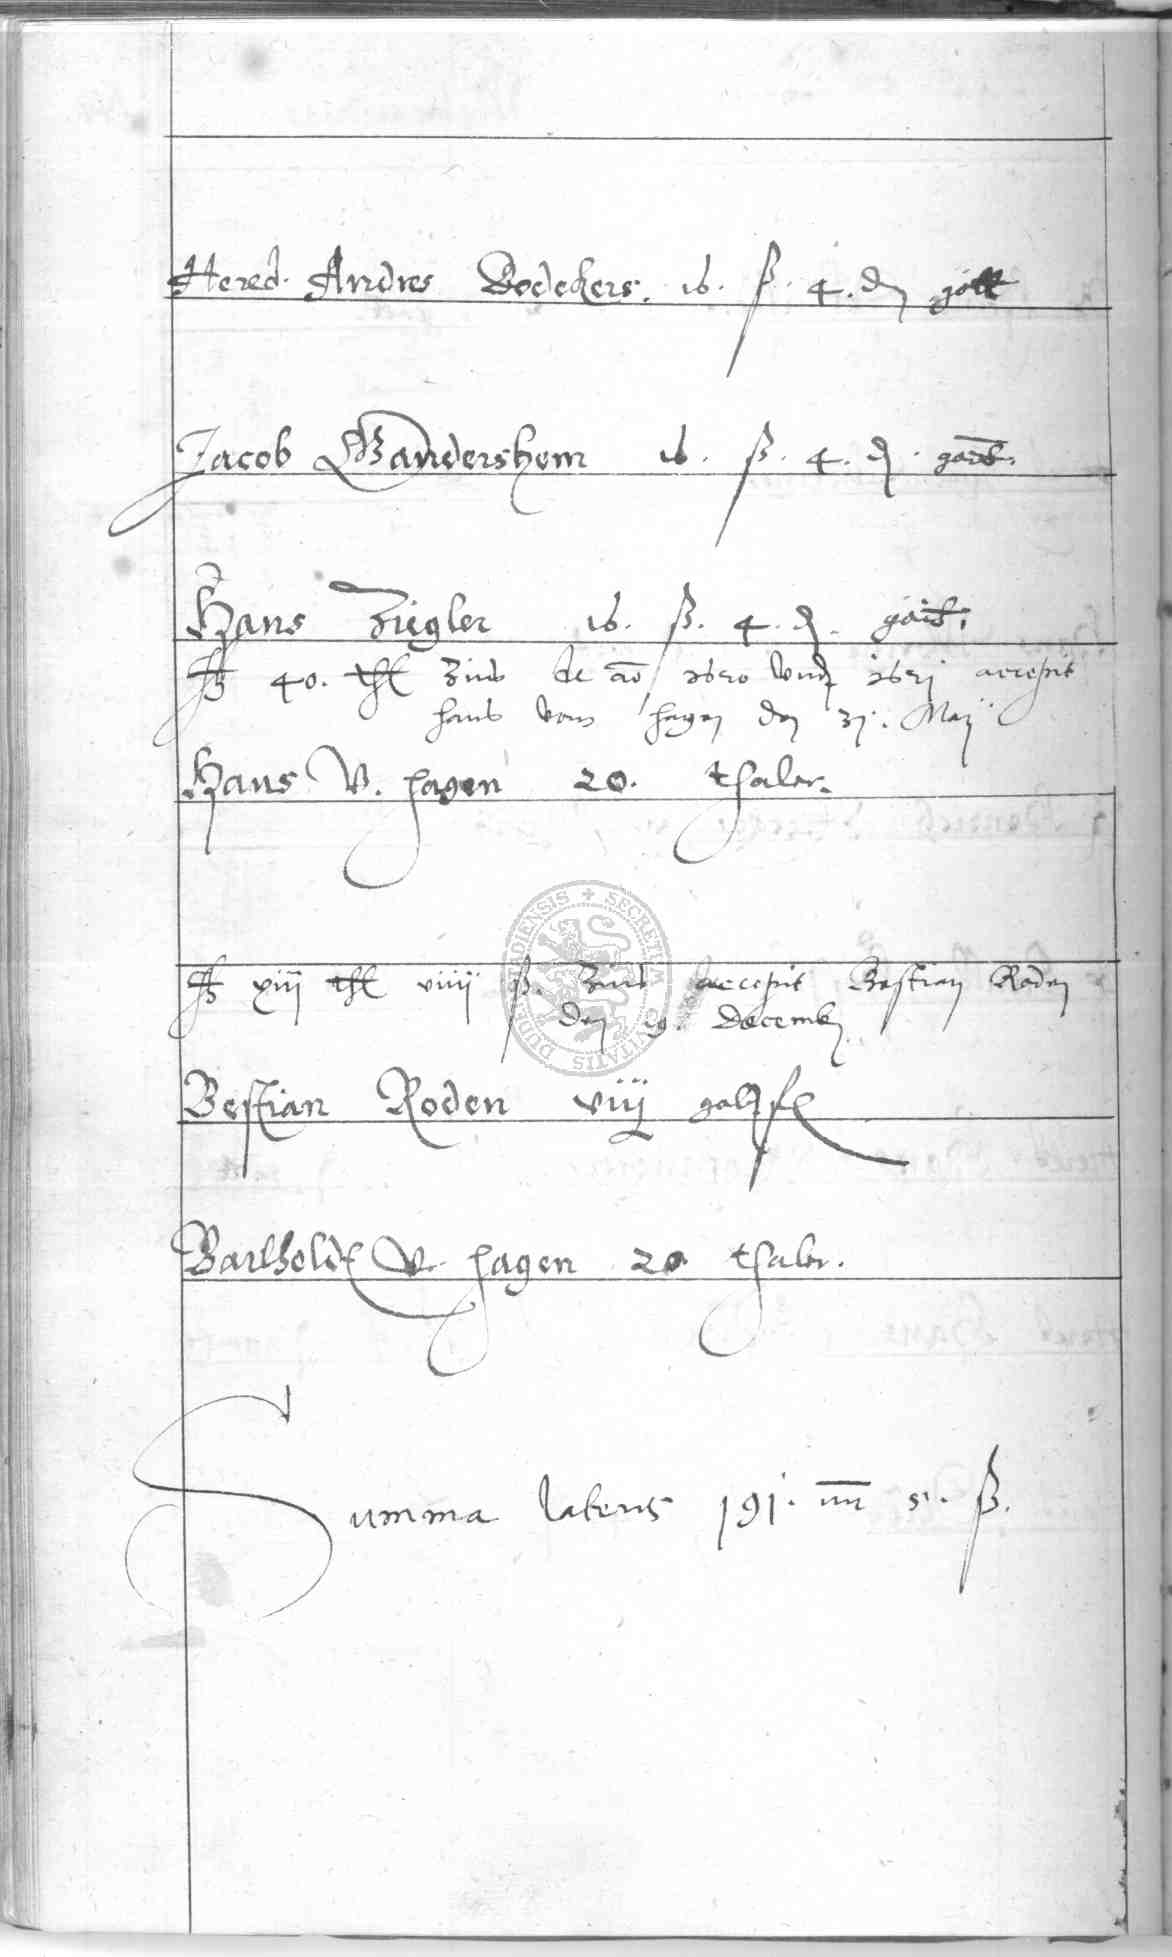 Hered. Andres Bodekers. 16. ß. 4. d
Jacob Gandershem 16. ß. 4. d.
Hans Ziegler 16. ß. 4. d.
40. thl Zins de ao und accepit
hans vom hagen den 31. Maij
Hans V. hagen 20. thaler.
xiij thl viiij ß. Zins accepit Bastian Roden
den 19. Decemb
Bestian Roden viij goltfl
Barthold V. hagen 20 thaler.
Summa lateris 191. 5. ß.
SECRETUM CIVITATIS DUDERSTADIENSIS